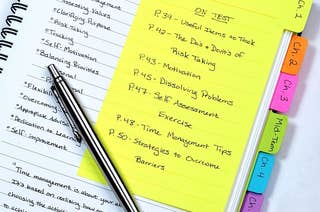 Assessing Values
*Clarifying Purpose
*Risk Taking
*Tracking
*Self-Motivation
*Balancing Priorities
ON TEST
P.39 - Useful Items to Track
P.42 - The Do's & Don'ts of
Risk Taking
P.43 - Motivation
P.45 - Dissolving Problems
P.47 - Self Assessment
Exercise
P.48 - Time Management Tips
P.50 - Strategies to Overcome
Barriers
*Overcoming
*Appropriate Advice
*Dedication to Learn
*Self-improvement
"Time management is about your
It's based on realizing how
choosing the
Ch. 1
Ch. 2
Ch. 3
Mid-Term
Ch. 4
Ch. 5